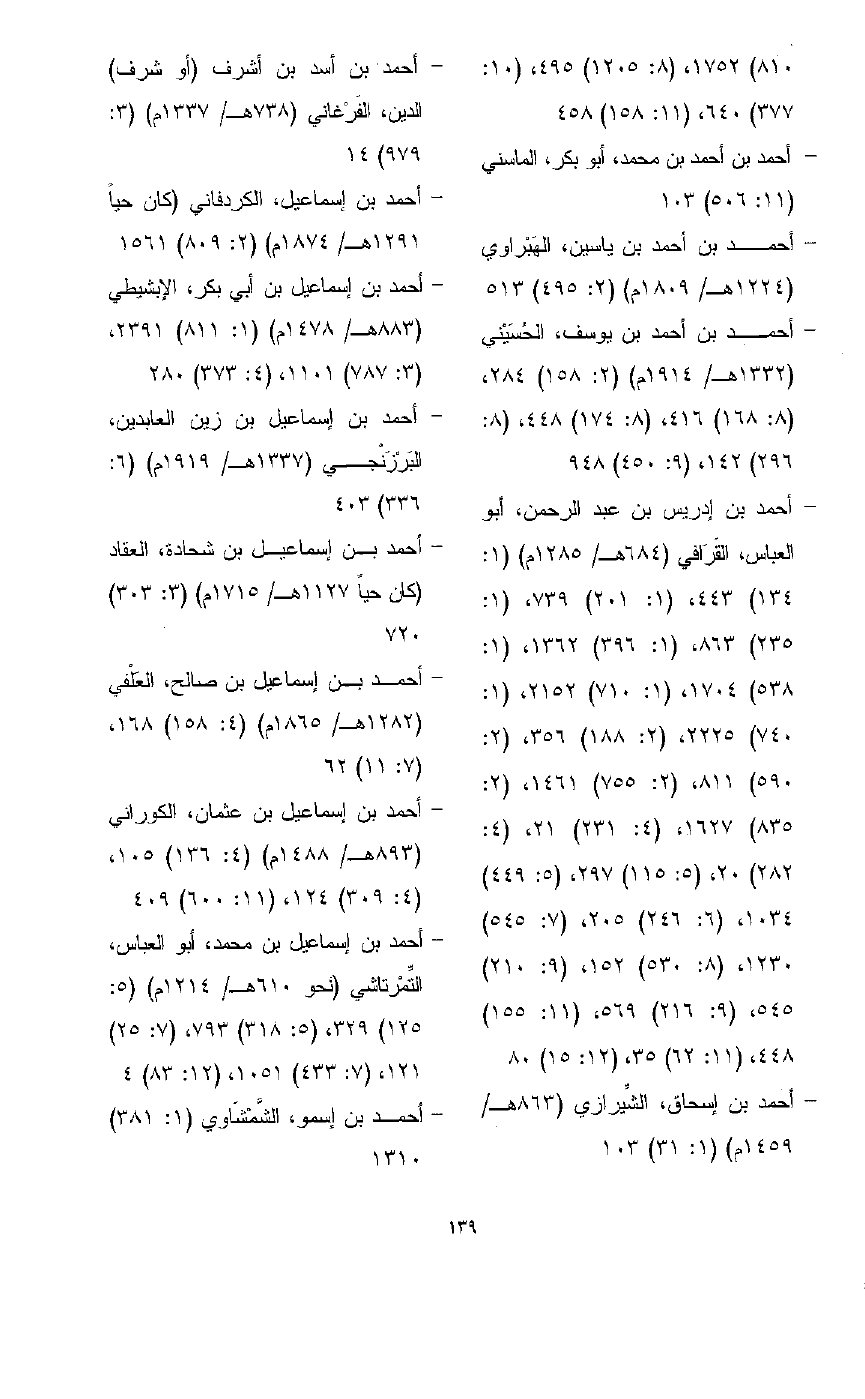 ٨١٠) ١٧٥٢، (٨: ١٢٠٥) ٤٩٥، (١٠:
٣٧٧) ٦٤٠، (١١: ١٥٨) ٤٥٨
- أحمد بن أحمد بن محمد، أبو بكر، الماسني
(١١: ٥٠٦) ١٠٣
- أحمـــــد بن أحمد بن ياسين، الهَبْراوي
(١٢٢٤هــ/ ١٨٠٩م) (٢: ٤٩٥) ٥١٣
- أحمـــــد بن أحمد بن يوسف، الحُسَيْني
(١٣٣٢هــ/ ١٩١٤م) (٢: ١٥٨) ٢٨٤،
(٨: ١٦٨) ٤١٦، (٨: ١٧٤) ٤٤٨، (٨:
٢٩٦) ١٤٢، (٩: ٤٥٠) ٩٤٨
- أحمد بن إدريس بن عبد الرحمن، أبو
العباس، القَرَافي (٦٨٤هــ/ ١٢٨٥م) (١:
١٣٤) ٤٤٣، (١: ٢٠١) ٧٣٩، (١:
٢٣٥) ٨٦٣، (١: ٣٩٦) ١٣٦٢، (١:
٥٣٨) ١٧٠٤، (١: ٧١٠) ٢١٥٢، (١:
٧٤٠) ٢٢٢٥، (٢: ١٨٨) ٣٥٦، (٢:
٥٩٠) ٨١١، (٢: ٧٥٥) ١٤٦١، (٢:
٨٣٥) ١٦٢٧، (٤: ٢٣١) ٢١، (٤:
٢٨٢) ٢٠، (٥: ١١٥) ٢٩٧، (٥: ٤٤٩)
١٠٣٤، (٦: ٢٤٦) ٢٠٥، (٧: ٥٤٥)
١٢٣٠، (٨: ٥٣٠) ١٥٢، (٩: ٢١٠)
٥٤٥، (٩: ٢١٦) ٥٦٩، (١١: ١٥٥)
٤٤٨، (١١: ٦٢) ٣٥، (١٢: ١٥) ٨٠
- أحمد بن إسحاق، الشِّيرازي (٨٦٣هــ/
١٤٥٩م) (١: ٣١) ١٠٣
- أحمد بن أسد بن أشرف (أو شرف)
الدين، الفَرْغاني (٧٣٨هــ/ ١٣٣٧م) (٣:
٩٧٩) ١٤
- أحمد بن إسماعيل، الكردفاني (كان حياً
١٢٩١هــ/ ١٨٧٤م) (٢: ٨٠٩) ١٥٦١
- أحمد بن إسماعيل بن أبي بكر، الإبشيطي
(٨٨٣هــ/ ١٤٧٨م) (١: ٨١١) ٢٣٩١،
(٣: ٧٨٧) ١١٠١، (٤: ٣٧٣) ٢٨٠
- أحمد بن إسماعيل بن زين العابدين،
البَرْزَنْجـــــي (١٣٣٧هــ/ ١٩١٩م) (٦:
٣٣٦) ٤٠٣
- أحمد بـــن إسماعيـــل بن شحادة، العقاد
(كان حياً ١١٢٧هــ/ ١٧١٥م) (٣: ٣٠٣)
٧٢٠
- أحمـــد بـــن إسماعيل بن صالح، العلْفي
(١٢٨٢هــ/ ١٨٦٥م) (٤: ١٥٨) ١٦٨،
(٧: ١١) ٦٢
- أحمد بن إسماعيل بن عثمان، الكوراني
(٨٩٣هــ/ ١٤٨٨م) (٤: ١٣٦) ١٠٥،
(٤: ٣٠٩) ١٢٤، (١١: ٦٠٠) ٤٠٩
- أحمد بن إسماعيل بن محمد، أبو العباس،
التُّمْرتاشي (نحو ٦١٠هــ/ ١٢١٤م) (٥:
١٢٥) ٣٢٩، (٥: ٣١٨) ٧٩٣، (٧: ٢٥)
١٢١، (٧: ٤٣٣) ١٠٥١، (١٢: ٨٣) ٤
- أحمـــد بن إسمو، الشَّمْشَاوي (١: ٣٨١)
١٣١٠
١٣٩